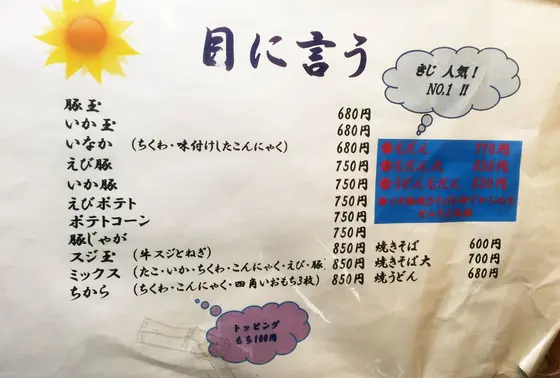 目に言う
きじ 人気!
NO.1 !!
豚玉 680円
いか玉 680円
いなか (ちくわ・味付けしたこんにゃく) 680円
えび豚 750円
いか豚 750円
えびポテト 750円
ポテトコーン 750円
豚じゃが 750円
スジ玉 (牛スジとねぎ) 850円
ミックス (たこ・いか・ちくわ・こんにゃく・えび・豚) 850円
ちから (ちくわ・こんにゃく・四角いおもち3枚) 850円
もだん
うどんもだん
焼きそば 600円
焼きそば大 700円
焼うどん 680円
トッピング
もち100円